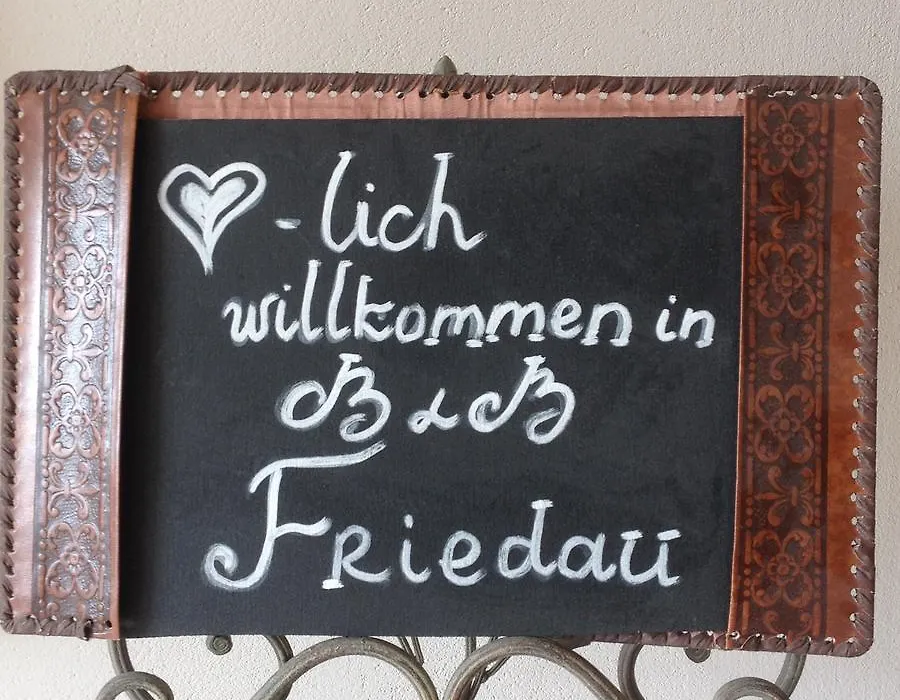 ♥-lich
willkommen in
B & B
Friedau